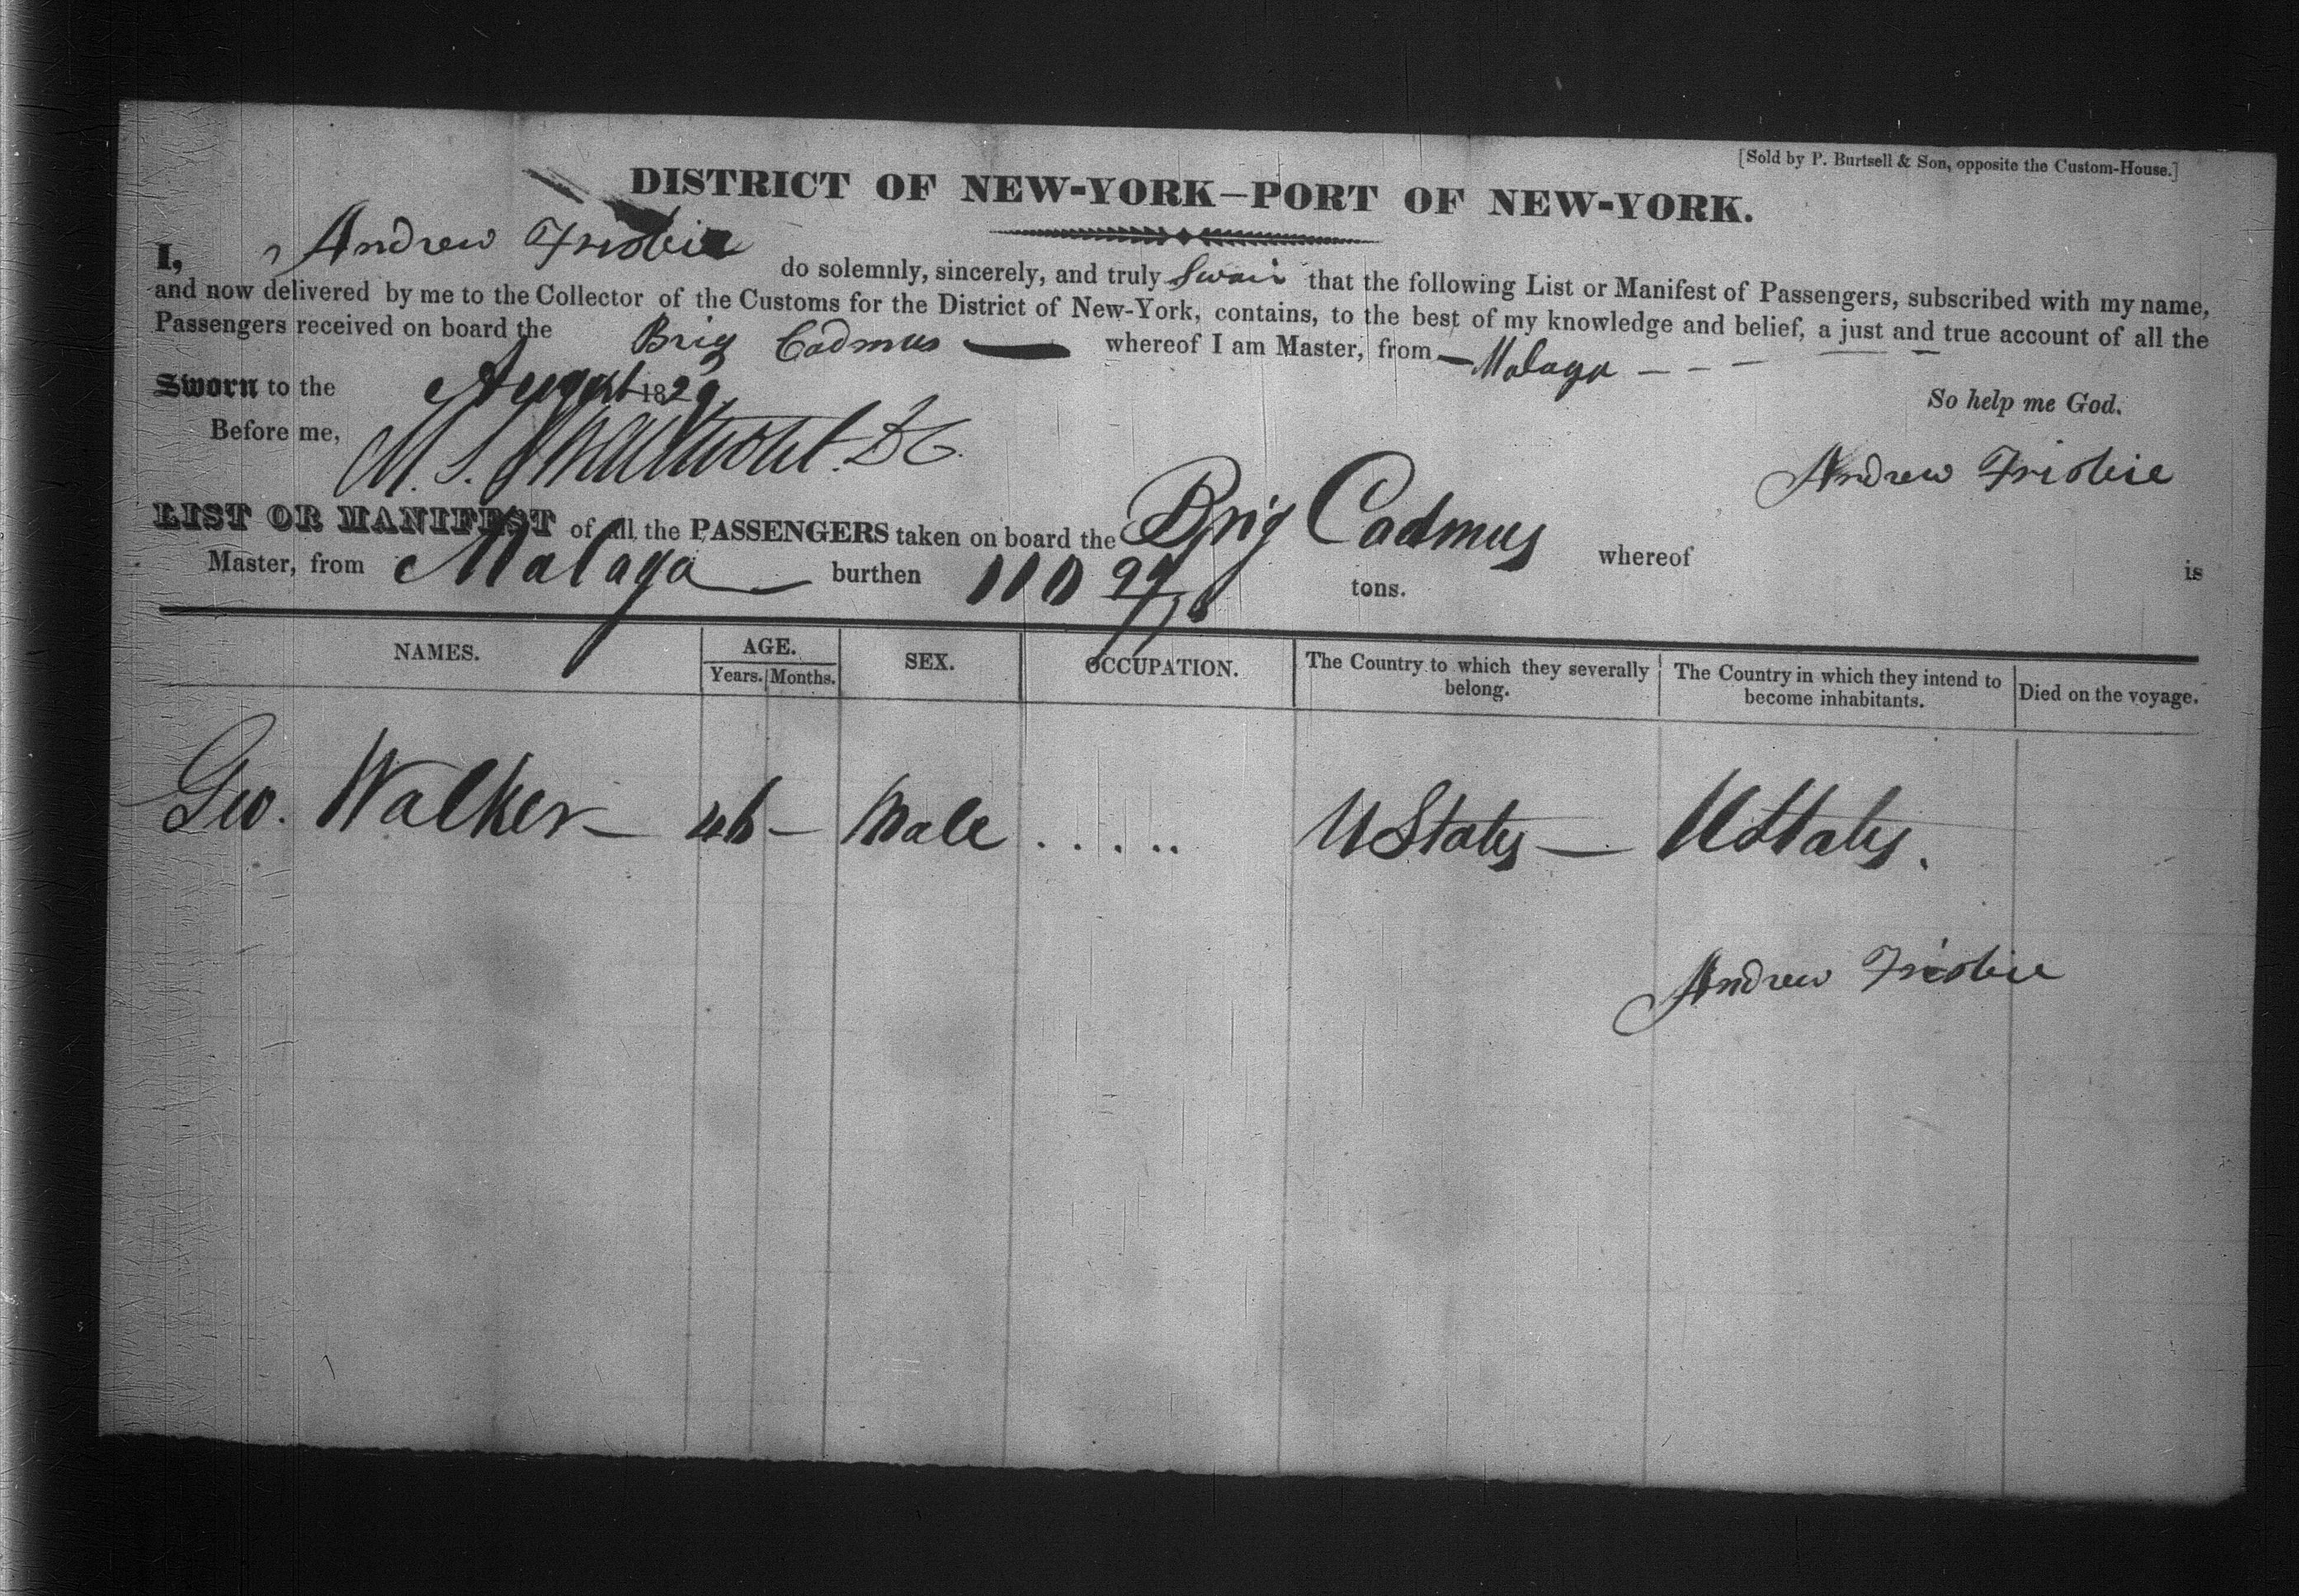 [Sold by P. Burtsell & Son, opposite the Custom-House.]
DISTRICT OF NEW-YORK—PORT OF NEW-YORK.
I, Andrew Frisbie do solemnly, sincerely, and truly Swair that the following List or Manifest of Passengers, subscribed with my name,
and now delivered by me to the Collector of the Customs for the District of New-York, contains, to the best of my knowledge and belief, a just and true account of all the
Passengers received on board the Brig Cadmus — whereof I am Master, from — Malaga - - -
Sworn to the August 1829 So help me God.
Before me, M. S. Swartwout. D C. Andrew Frisbie
LIST OR MANIFEST of all the PASSENGERS taken on board the Brig Cadmus whereof is
Master, from Malaga — burthen 110 tons.
NAMES. AGE. Years. Months. SEX. OCCUPATION. The Country to which they severally belong. The Country in which they intend to become inhabitants. Died on the voyage.
Geo. Walker — 46 — Male . . . . . U States — U States.
Andrew Frisbie